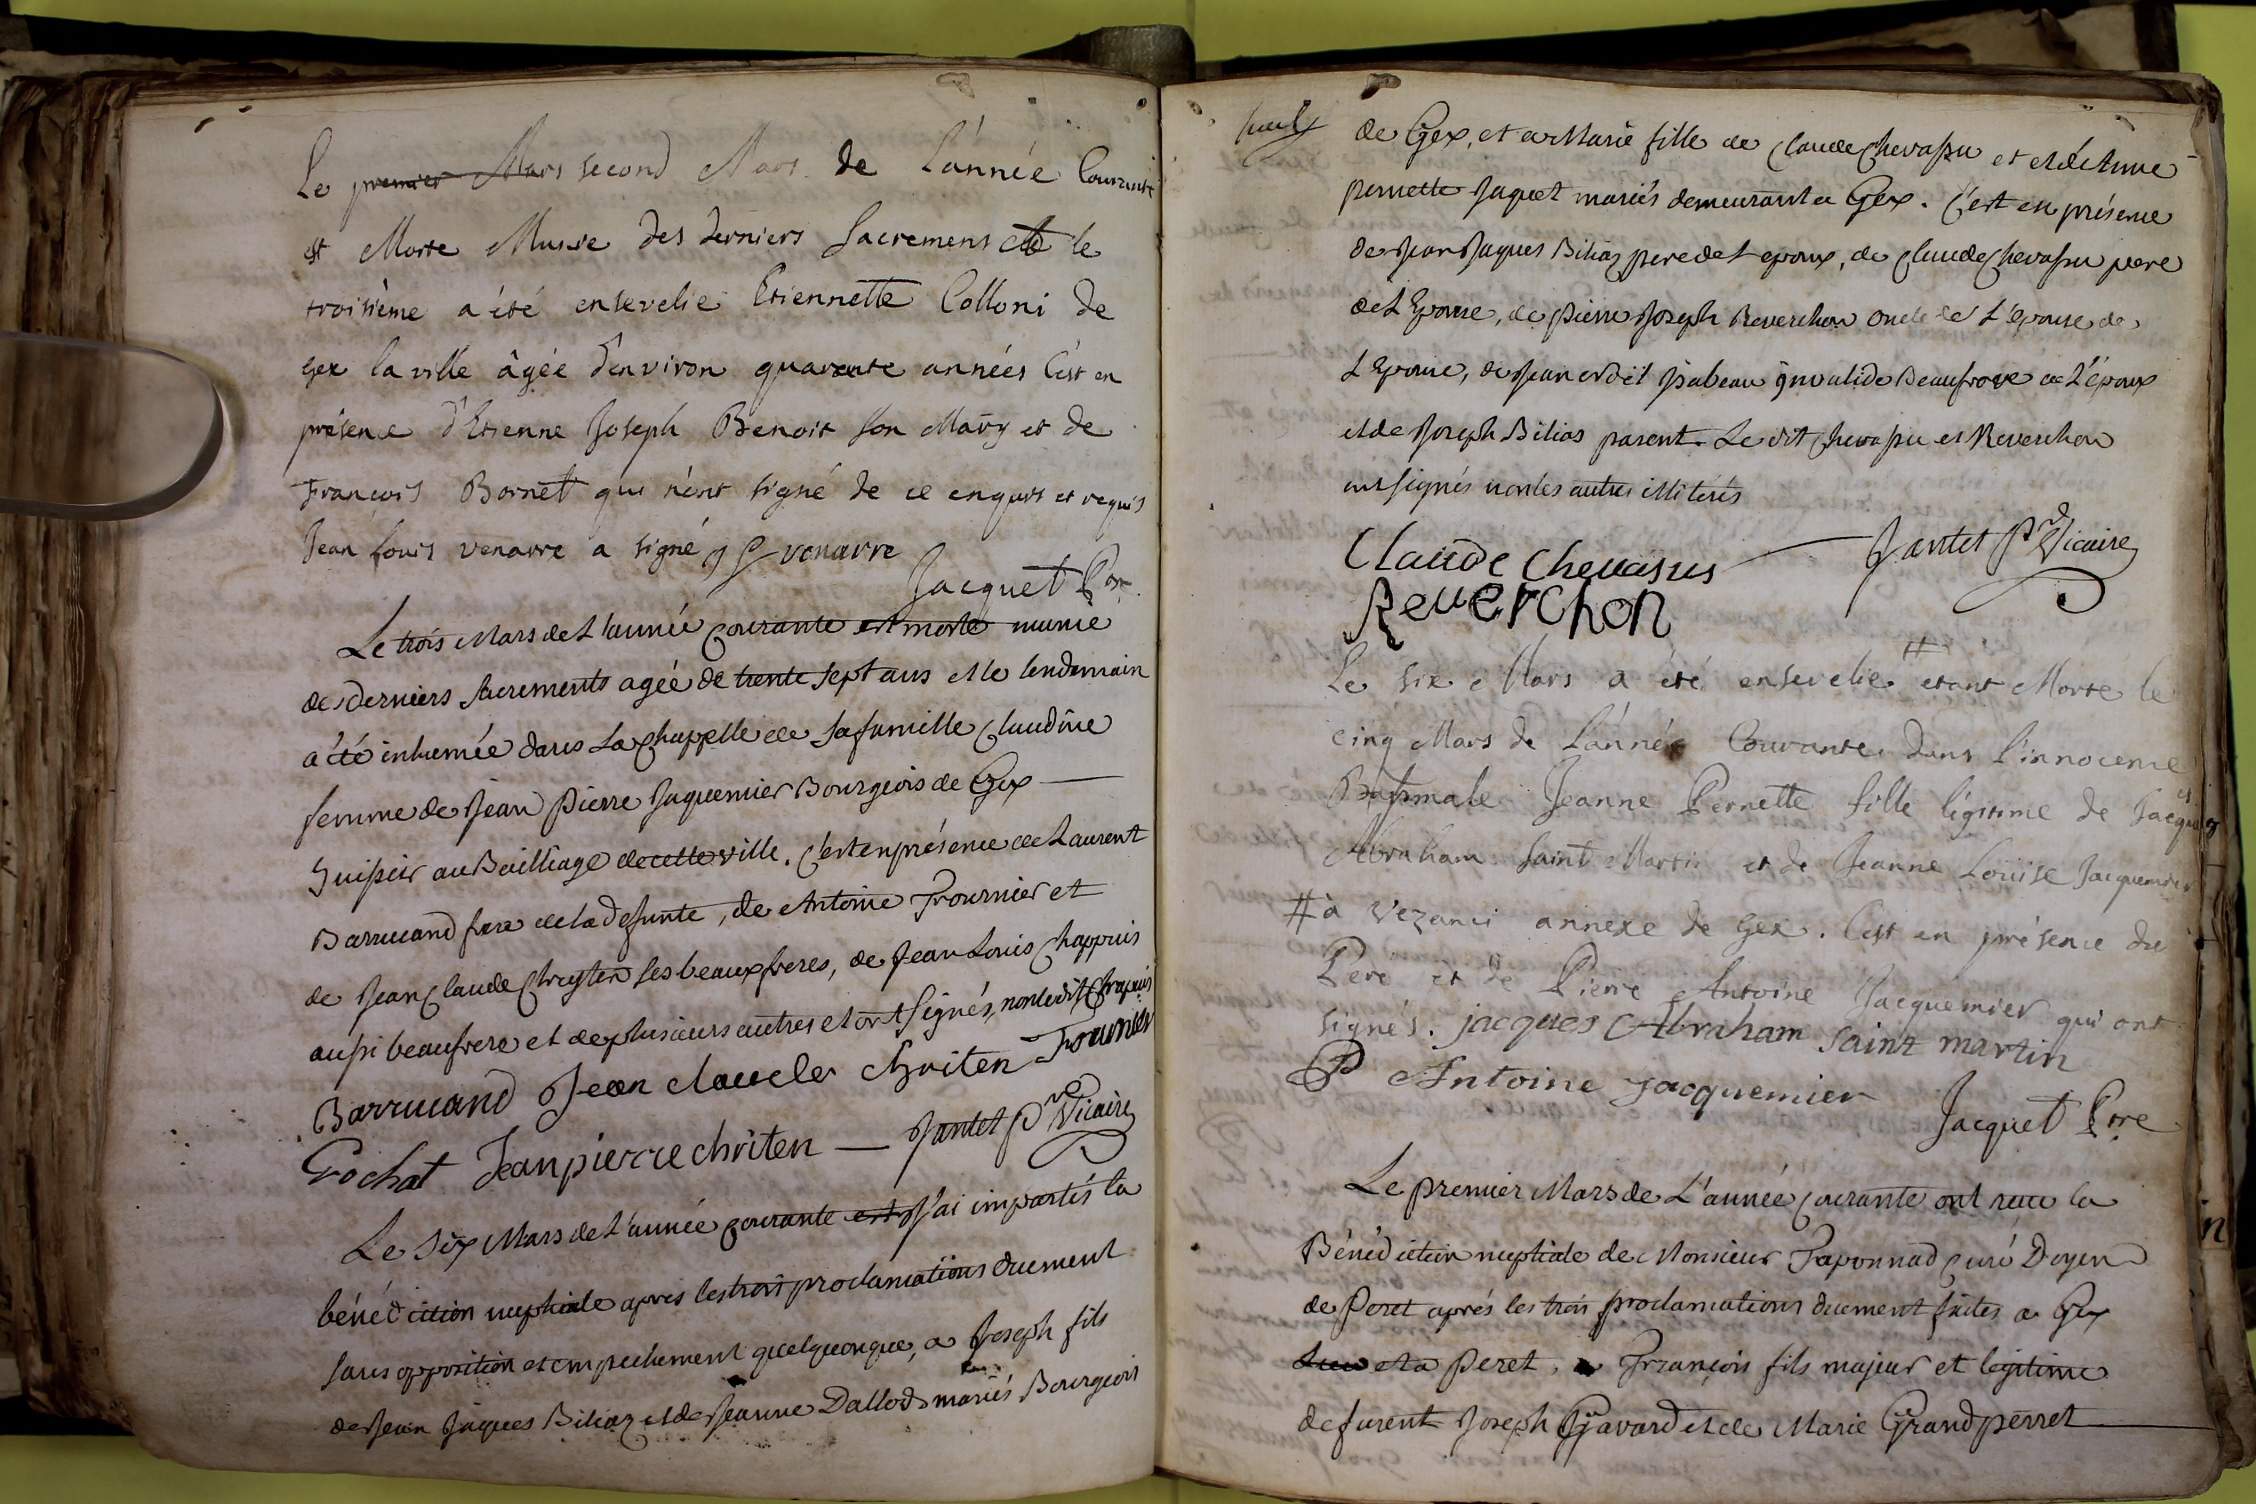 Le premier Mars second Mars de L'année Courante
est Morte Munie des derniers Sacremens et le
troisième a été ensevelie Etiennette Colloni de
Gex la ville âgée d'environ quarante années C'est en
présence d'Etienne Joseph Benoit son Mary et de
François Bornet qui n'ont signé de ce enquis et requis
Jean Louis venarre a signé J L venarre
Jacquet Ptre
Le trois Mars de L'année courante est morte munie
des derniers sacrements agée de trente sept ans et le lendemain
a été inhumée dans La Chappelle de sa famille Claudine
femme de Jean Pierre Jaquemier Bourgeois de Gex
huissier au Bailliage de cette ville. C'est en présence de Laurent
Barrucand frere de la defunte, de Antoine Fournier et
de Jean Claude Chryten ses beaux freres, de Jean Louis Chappuis
aussi beaufrere et de plusieurs autres et ont signés, non ledit Chapuis
Barrucand Jean claude chriten Fournier
Crochat Jean pierre chriten — Jantet Pre Vicaire
Le Six Mars de L'année courante est J'ai impartis la
bénédiction nuptiale apres les trois proclamations duement
sans opposition et empechement quelquonque, a Joseph fils
de Jean Jaques Biliaz et de Jeanne Dallod mariés Bourgeois
de Gex, et a Marie fille de Claude Chevassu et et de Anne
pernette Jaquet mariés demeurant a Gex. C'est en présence
de Jean Jaques Biliaz pere de L'epoux, de Claude Chevassu pere
de L'Epouse, de Pierre Joseph Reverchon oncle de L'epouse de
L'Epouse, de Jean dit Isabeau invalide Beaufrere de L'époux
et de Joseph Bilias parent. Le dit Chevassu et Reverchon
ont signés non les autres illiterés
Claude Chevassus — Jantet Pre Vicaire
Reverchon
Le six Mars a été ensevelie # etant Morte le
cinq Mars de L'année Courante dans l'innocence
Baptismale Jeanne Pernette fille légitime de Jacques
Abraham Saint Martin et de Jeanne Loüise Jacquemier
# à Vezanci annexe de Gex. C'est en présence du
Pere et de Pierre Antoine Jacquemier qui ont
signés. jacques Abraham saint martin
P Antoine jacquemier
Jacquet Ptre
Le premier Mars de L'année courante ont reçu la
Bénédiction nuptiale de Monsieur Taponnad Curé Doyen
de Peret aprés les trois proclamations duement faites a Gex
et a Peret, François fils majeur et legitime
de furent Joseph Gavard et de Marie Grandperret